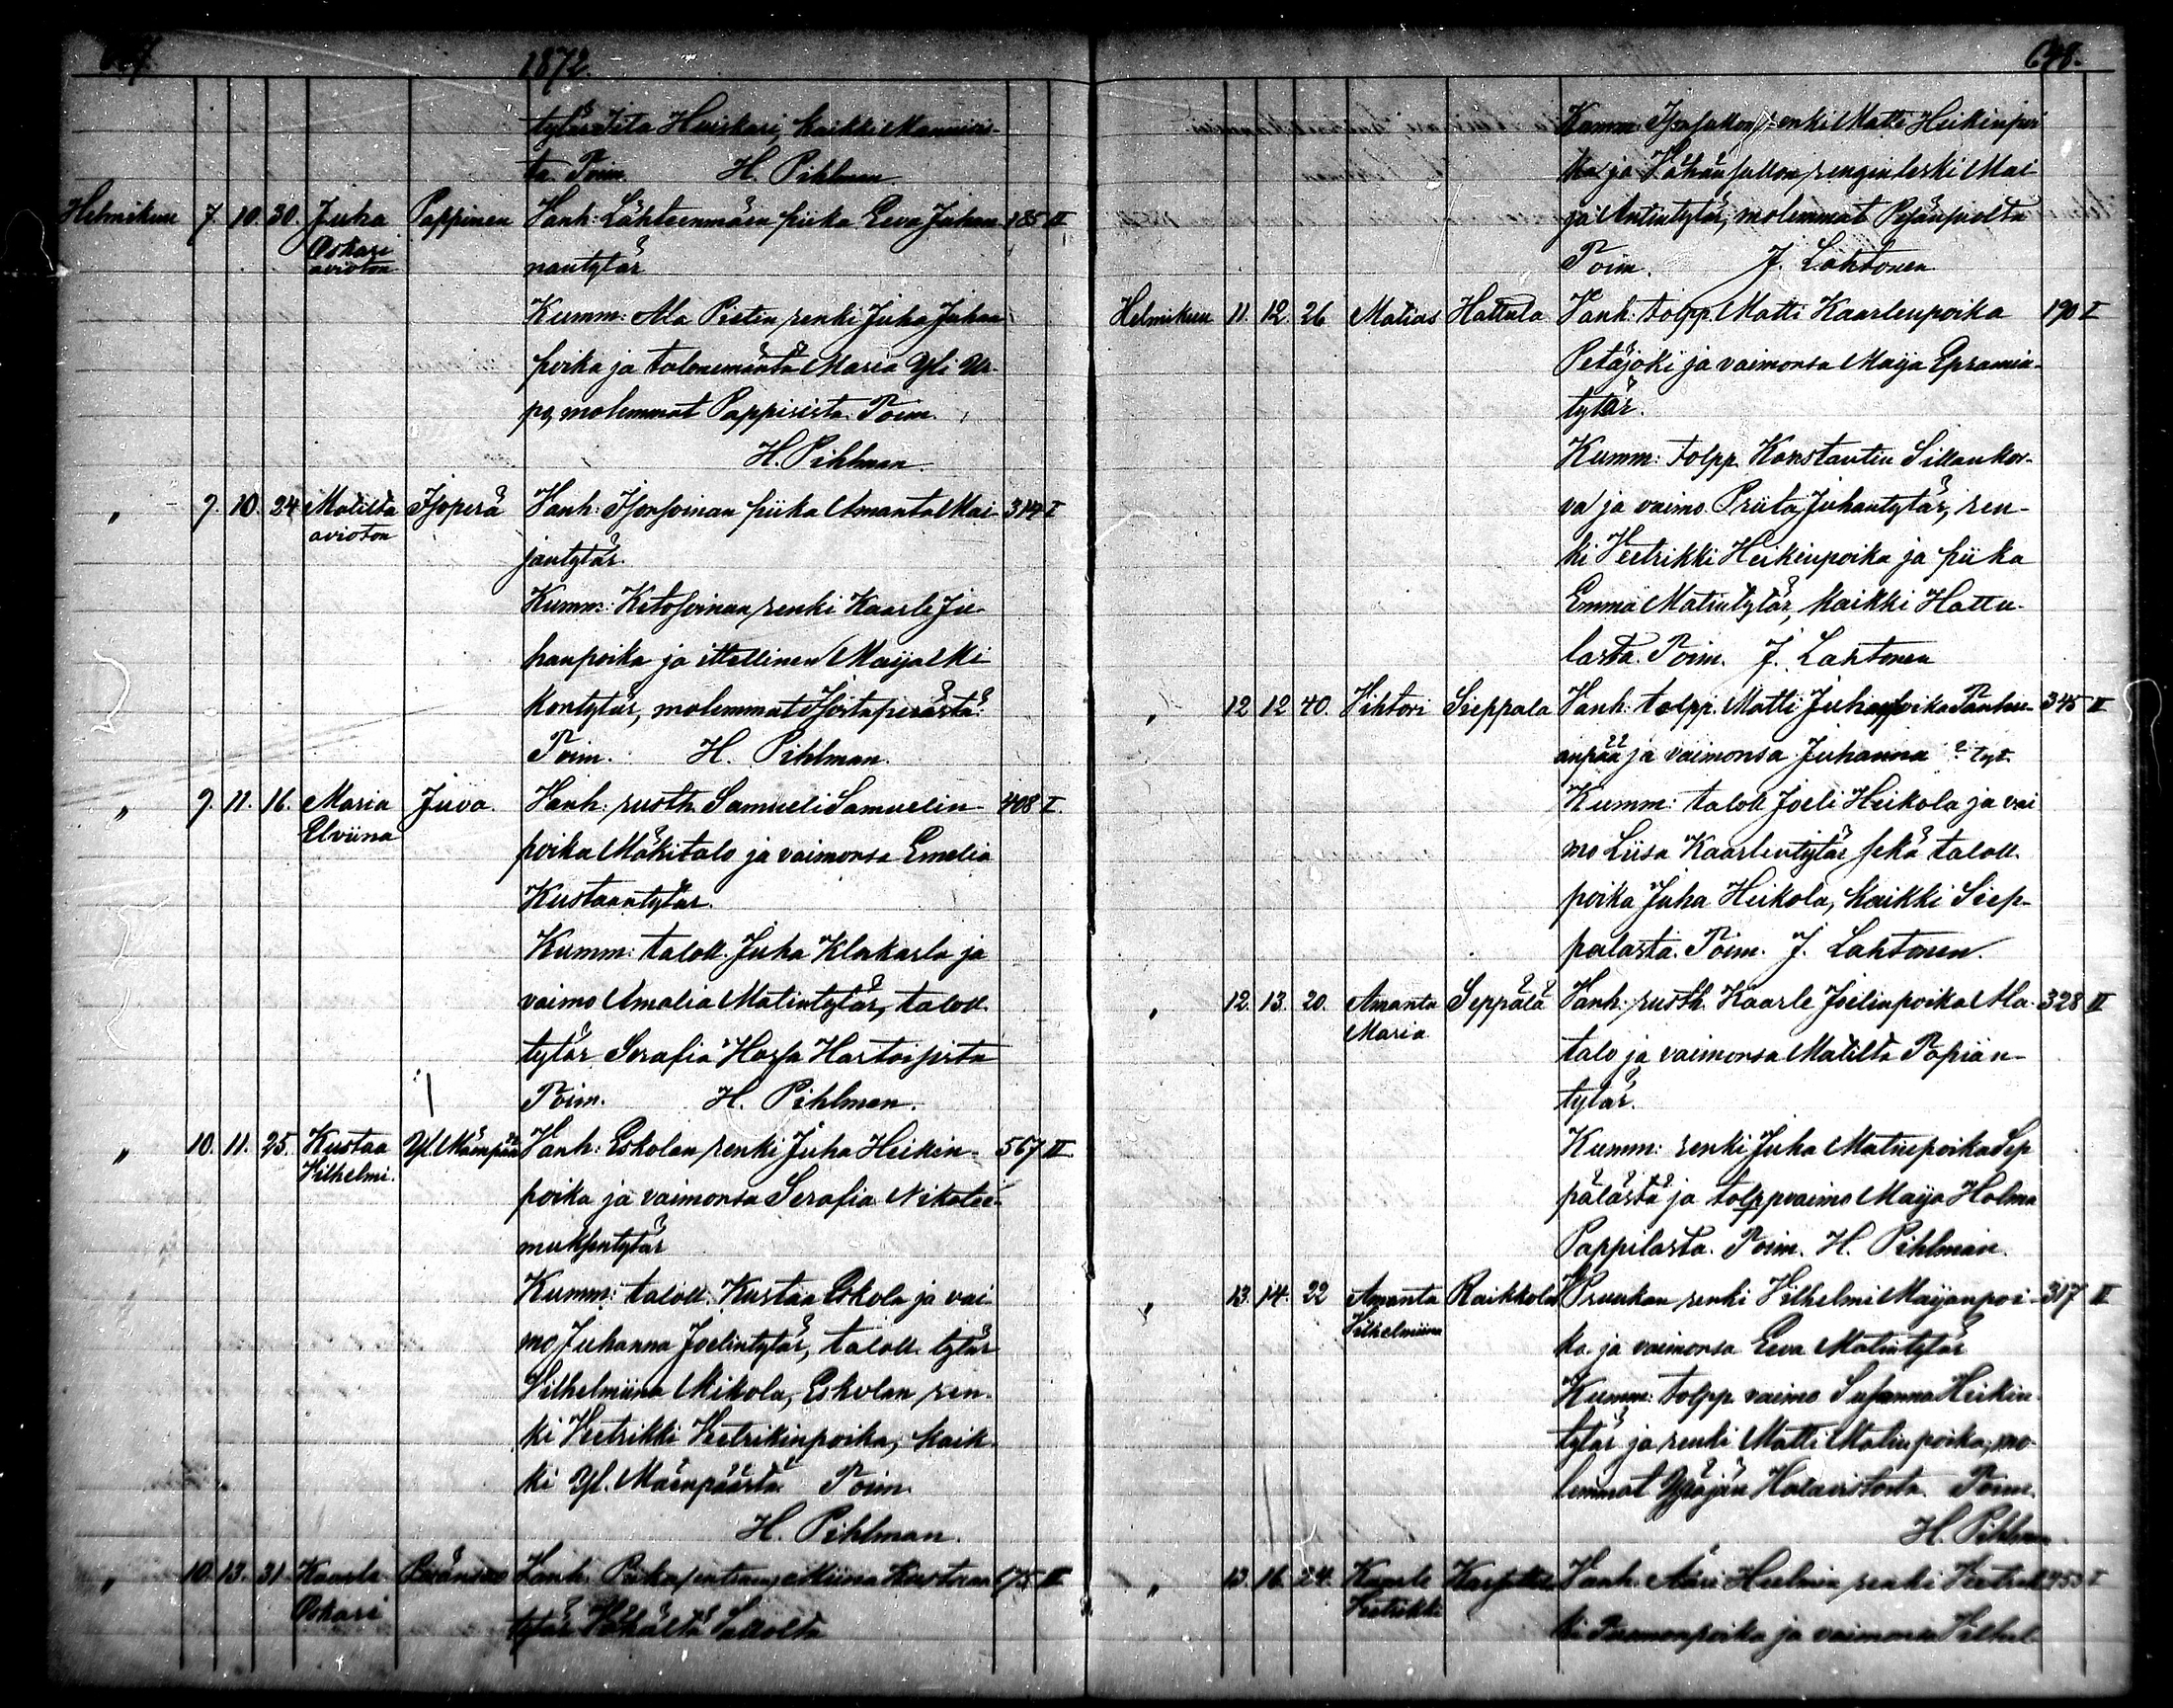 1872.
648.
tytär Iita Huiskari, kaikki Mannisis-
ta. Toim. H. Pihlman.
Helmikuu 7. 10. 30. Juha Pappinen Vanh: Lähteenmäen piika Eeva Juhan- 185 II
Oskari
avioton nantytär
Kumm: Ala Pietin renki Juha Juhan
poika ja talonemäntä Maria Yli Ur-
po, molemmat Pappisista. Toim.
H. Pihlman
" 9. 10. 24 Matilta Isoperä Vanh: Isonsoinan piika Amanta Mai- 314 I
avioton jantytär.
Kumm: Ketosoinan renki Kaarle Ju-
hanpoika ja itsellinen Maija Mi-
kontytär, molemmat Isostaperästä.
Toim. H. Pihlman.
" 9. 11. 16. Maria Juva Vanh: rusth. Samueli Samuelin- 408 I.
Elviina poika Mäkitalo ja vaimonsa Emelia
Kustaantytär.
Kumm: taloll. Juha Klakarla ja
vaimo Amalia Matintytär, taloll.
tytär Serafia Harja Hartoisista
Toim. H. Pihlman.
" 10. 11. 25. Kustaa Yl. Mäenpää Vanh: Eskolan renki Juha Heikin- 567 II
Vilhelmi. poika ja vaimonsa Serafia Nikotee-
muksentytär
Kumm: taloll. Kustaa Eskola ja vai
mo Juhanna Joelintytär, taloll. tytär
Vilhelmiina Mikola, Eskolan ren-
ki Veetrikki Veetrikinpoika, kaik-
ki Yl. Mäenpäästä. Toim.
H. Pihlman.
" 10. 13. 31. Kaarle Vanh: Miina Kustaan
Oskari tytär Vähältä Sallolta
Kumm: Isosallon renki Matti Heikinpoi
ka ja Vähänsallon rengin leski Mai
ja Antintytär, molemmat
Toim. J. Lahtonen
Helmikuu 11. 12. 26 Matias Hattula Vanh: tolpp. Matti Kaarlenpoika 190 I
Petäjoki ja vaimonsa Maija Epramin-
tytär.
Kumm: tolpp. Konstantin Sillankor-
va ja vaimo Priita Juhantytär, ren-
ki Veetrikki Heikinpoika ja piika
Emma Matintytär, kaikki Hattu-
lasta. Toim. J. Lahtonen
" 12 12 40. Vihtori Sieppala Vanh: tolpp. Matti Juhanpoika Tanhu- 345 II
anpää ja vaimonsa Juhanna ? tyt.
Kumm: taloll Joeli Heikola ja vai
mo Liisa Kaarlentytär sekä taloll.
poika Juha Heikola, kaikki Siep-
palasta. Toim. J. Lahtonen.
" 12. 13. 20. Amanta Seppälä Vanh: rusth. Kaarle Joelinpoika Ala- 328 II
Maria
talo ja vaimonsa Matilta Topian-
tytär.
Kumm: renki Juha Matinpoika Sep
pälästä ja tolppvaimo Maija Holma
Pappilasta. Toim. H. Pihlman.
" 13. 14. 22 Amanta Raikkola Pruukan renki Vilhelmi Maijanpoi- 317 II
Vilhelmiina
ka ja vaimonsa Eeva Matintytär
Kumm: tolpp. vaimo Susanna Heikin-
tytär ja renki Matti Matinpoika, mo-
lemmat Ypäjän Toim.
H. Pihlman
" 13. 16. 24. Kaarle Vanh: renki Veetrik
Veetrikki
ki ja vaimonsa Vilhel-